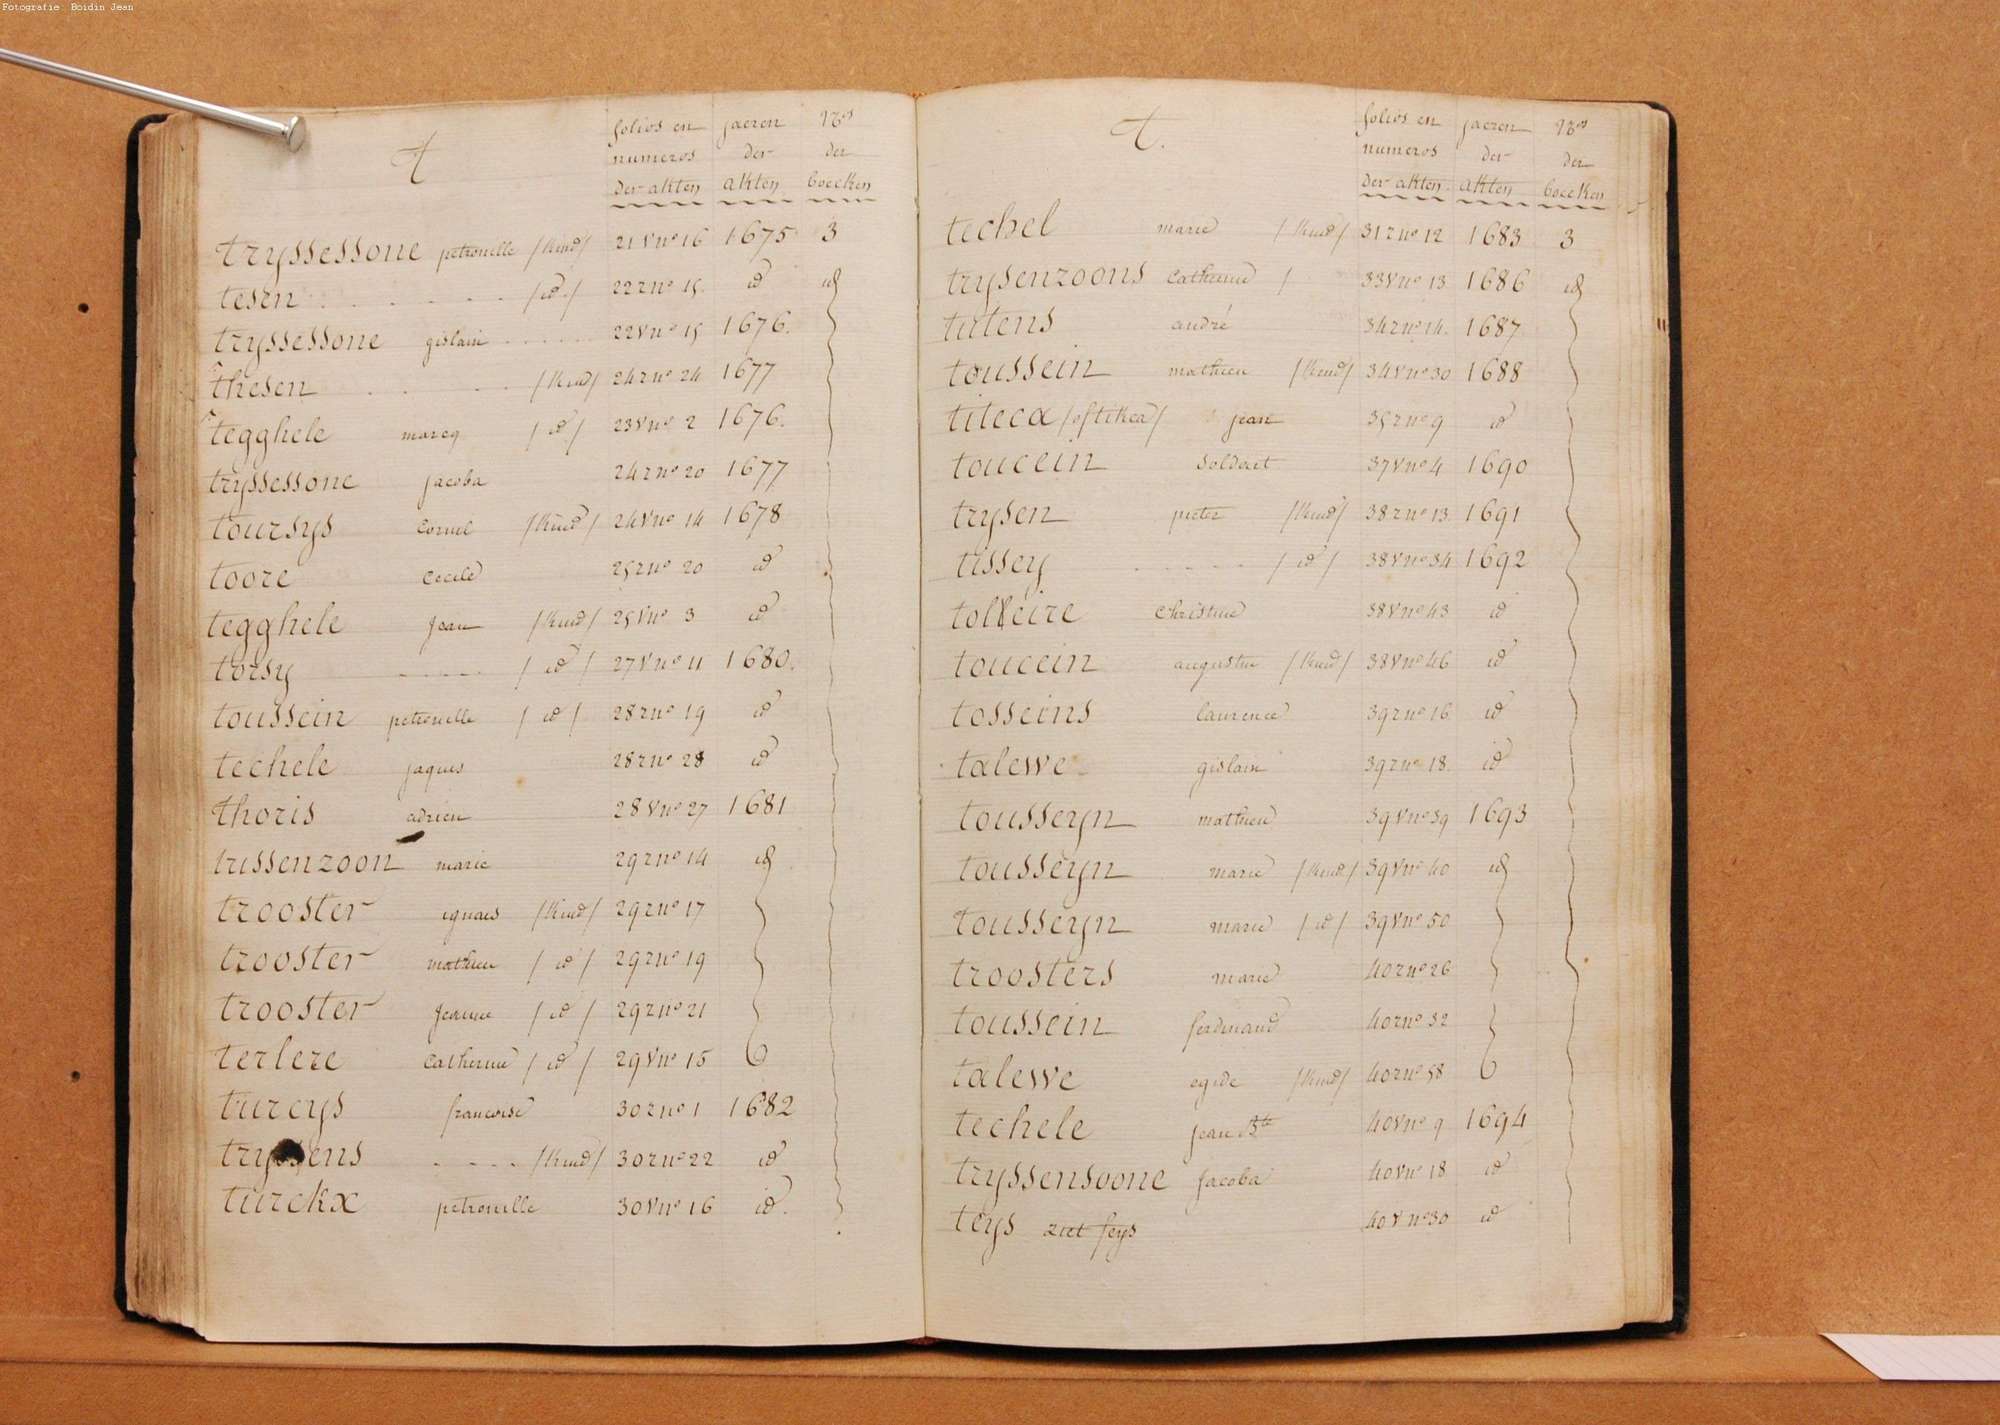 Fotografie Boidin Jean
T
folios en jaeren Nos
numeros der der
der akten akten boecken
tryssessone petronelle /kind/ 21 v no 16 1675 3
tesen /id./ 22 r no 15. id id
tryssessone gislain 22 v no 15 1676.
thesen /kind/ 24 r no 24 1677
tegghele marcq /id/ 23 v no 2 1676.
tryssessone jacoba 24 r no 20 1677
toursys cornil /kind/ 24 v no 14 1678
toore cecile 25 r no 20 id
tegghele jean /kind/ 25 v no 3 id
torsy /id/ 27 v no 11 1680.
toussein petronelle /id/ 28 r no 19 id
techele jaques 28 r no 28 id
thoris adrien 28 v no 27 1681
trissenzoon marie 29 r no 14 id
trooster ignaes /kind/ 29 r no 17
trooster mathieu /id/ 29 r no 19
trooster jeanne /id/ 29 r no 21
terlere catherine /id/ 29 v no 15
turcys francoise 30 r no 1 1682
tryssens /kind/ 30 r no 22 id
turckx petronelle 30 v no 16 id.
T.
folios en jaeren Nos
numeros der der
der akten akten boecken
techel marie /kind/ 31 r no 12 1683 3
trysenzoons catherine / 33 v no 13 1686 id
tutens andré 34 r no 14. 1687
toussein mathieu /kind/ 34 v no 30 1688
titeca /of tikea/ jean 35 r no 9 id
toucein soldaet 37 v no 4 1690
trysen pieter /kind/ 38 r no 13 1691
tissey /id/ 38 v no 34 1692
tolveire christine 38 v no 43 id
toucein augustin /kind/ 38 v no 46 id
tosseins laurence 39 r no 16 id
talewe gislain 39 r no 18. id
tousseyn mathieu 39 v no 39 1693
tousseyn marie /kind/ 39 v no 40 id
tousseyn marie /id/ 39 v no 50
troosters marie 40 r no 26
toussein ferdinand 40 r no 32
talewe egide /kind/ 40 r no 58
techele jean Bte 40 v no 9 1694
tryssensoone jacoba 40 v no 18 id
teys ziet feys 40 v no 30 id